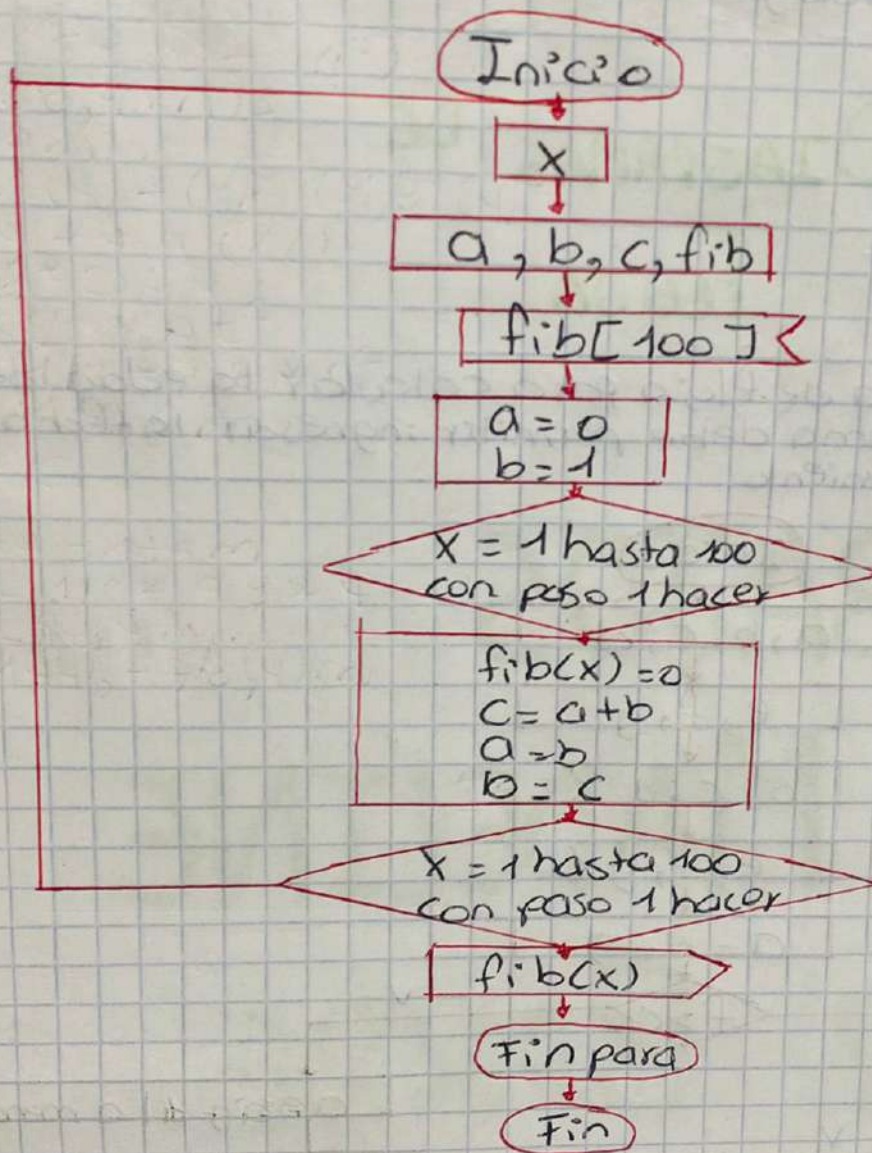 Inicio
x
a, b, c, fib
fib[100]
a = 0
b = 1
x = 1 hasta 100
con paso 1 hacer
fib(x) = 0
c = a + b
a = b
b = c
x = 1 hasta 100
con paso 1 hacer
fib(x)
Fin para
Fin